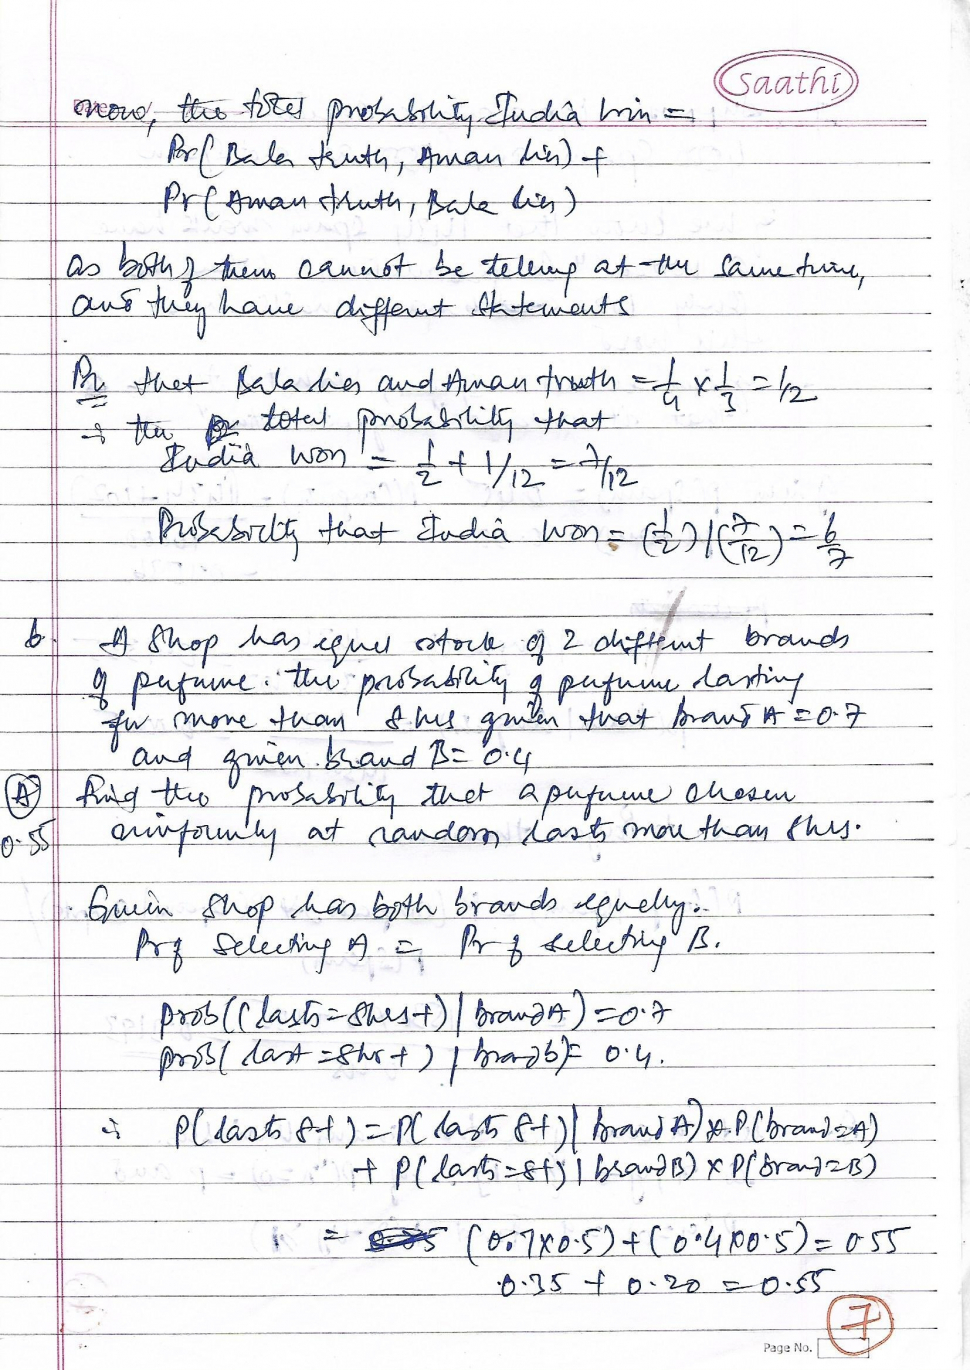 Saathi
now, the total probability India win =
Pr( Bala truth, Aman lies) +
Pr( Aman truth, Bala lies)
as both of them cannot be telling at the same time,
and they have different statements
Pr that Bala lies and Aman truth = 1/4 x 1/3 = 1/12
∴ the total probability that
India won = 1/2 + 1/12 = 7/12
Probability that India won = (1/2) / (7/12) = 6/7
b. A shop has equal stock of 2 different brands
of perfume. the probability of perfume lasting
for more than 8hrs given that brand A = 0.7
and given brand B = 0.4
(A) find the probability that a perfume chosen
0.55 uniformly at random lasts more than 8hrs.
Given shop has both brands equally.
Pr of selecting A = Pr of selecting B.
prob((lasts=8hrs+) | brand A) = 0.7
prob( last =8hr+ ) | brand b) = 0.4.
∴ P(lasts 8+) = P( lasts 8+) | brand A) x P(brand=A)
+ P( lasts=8+) | brand B) x P(brand=B)
= (0.7x0.5) + (0.4x0.5) = 0.55
0.35 + 0.20 = 0.55
7
Page No.